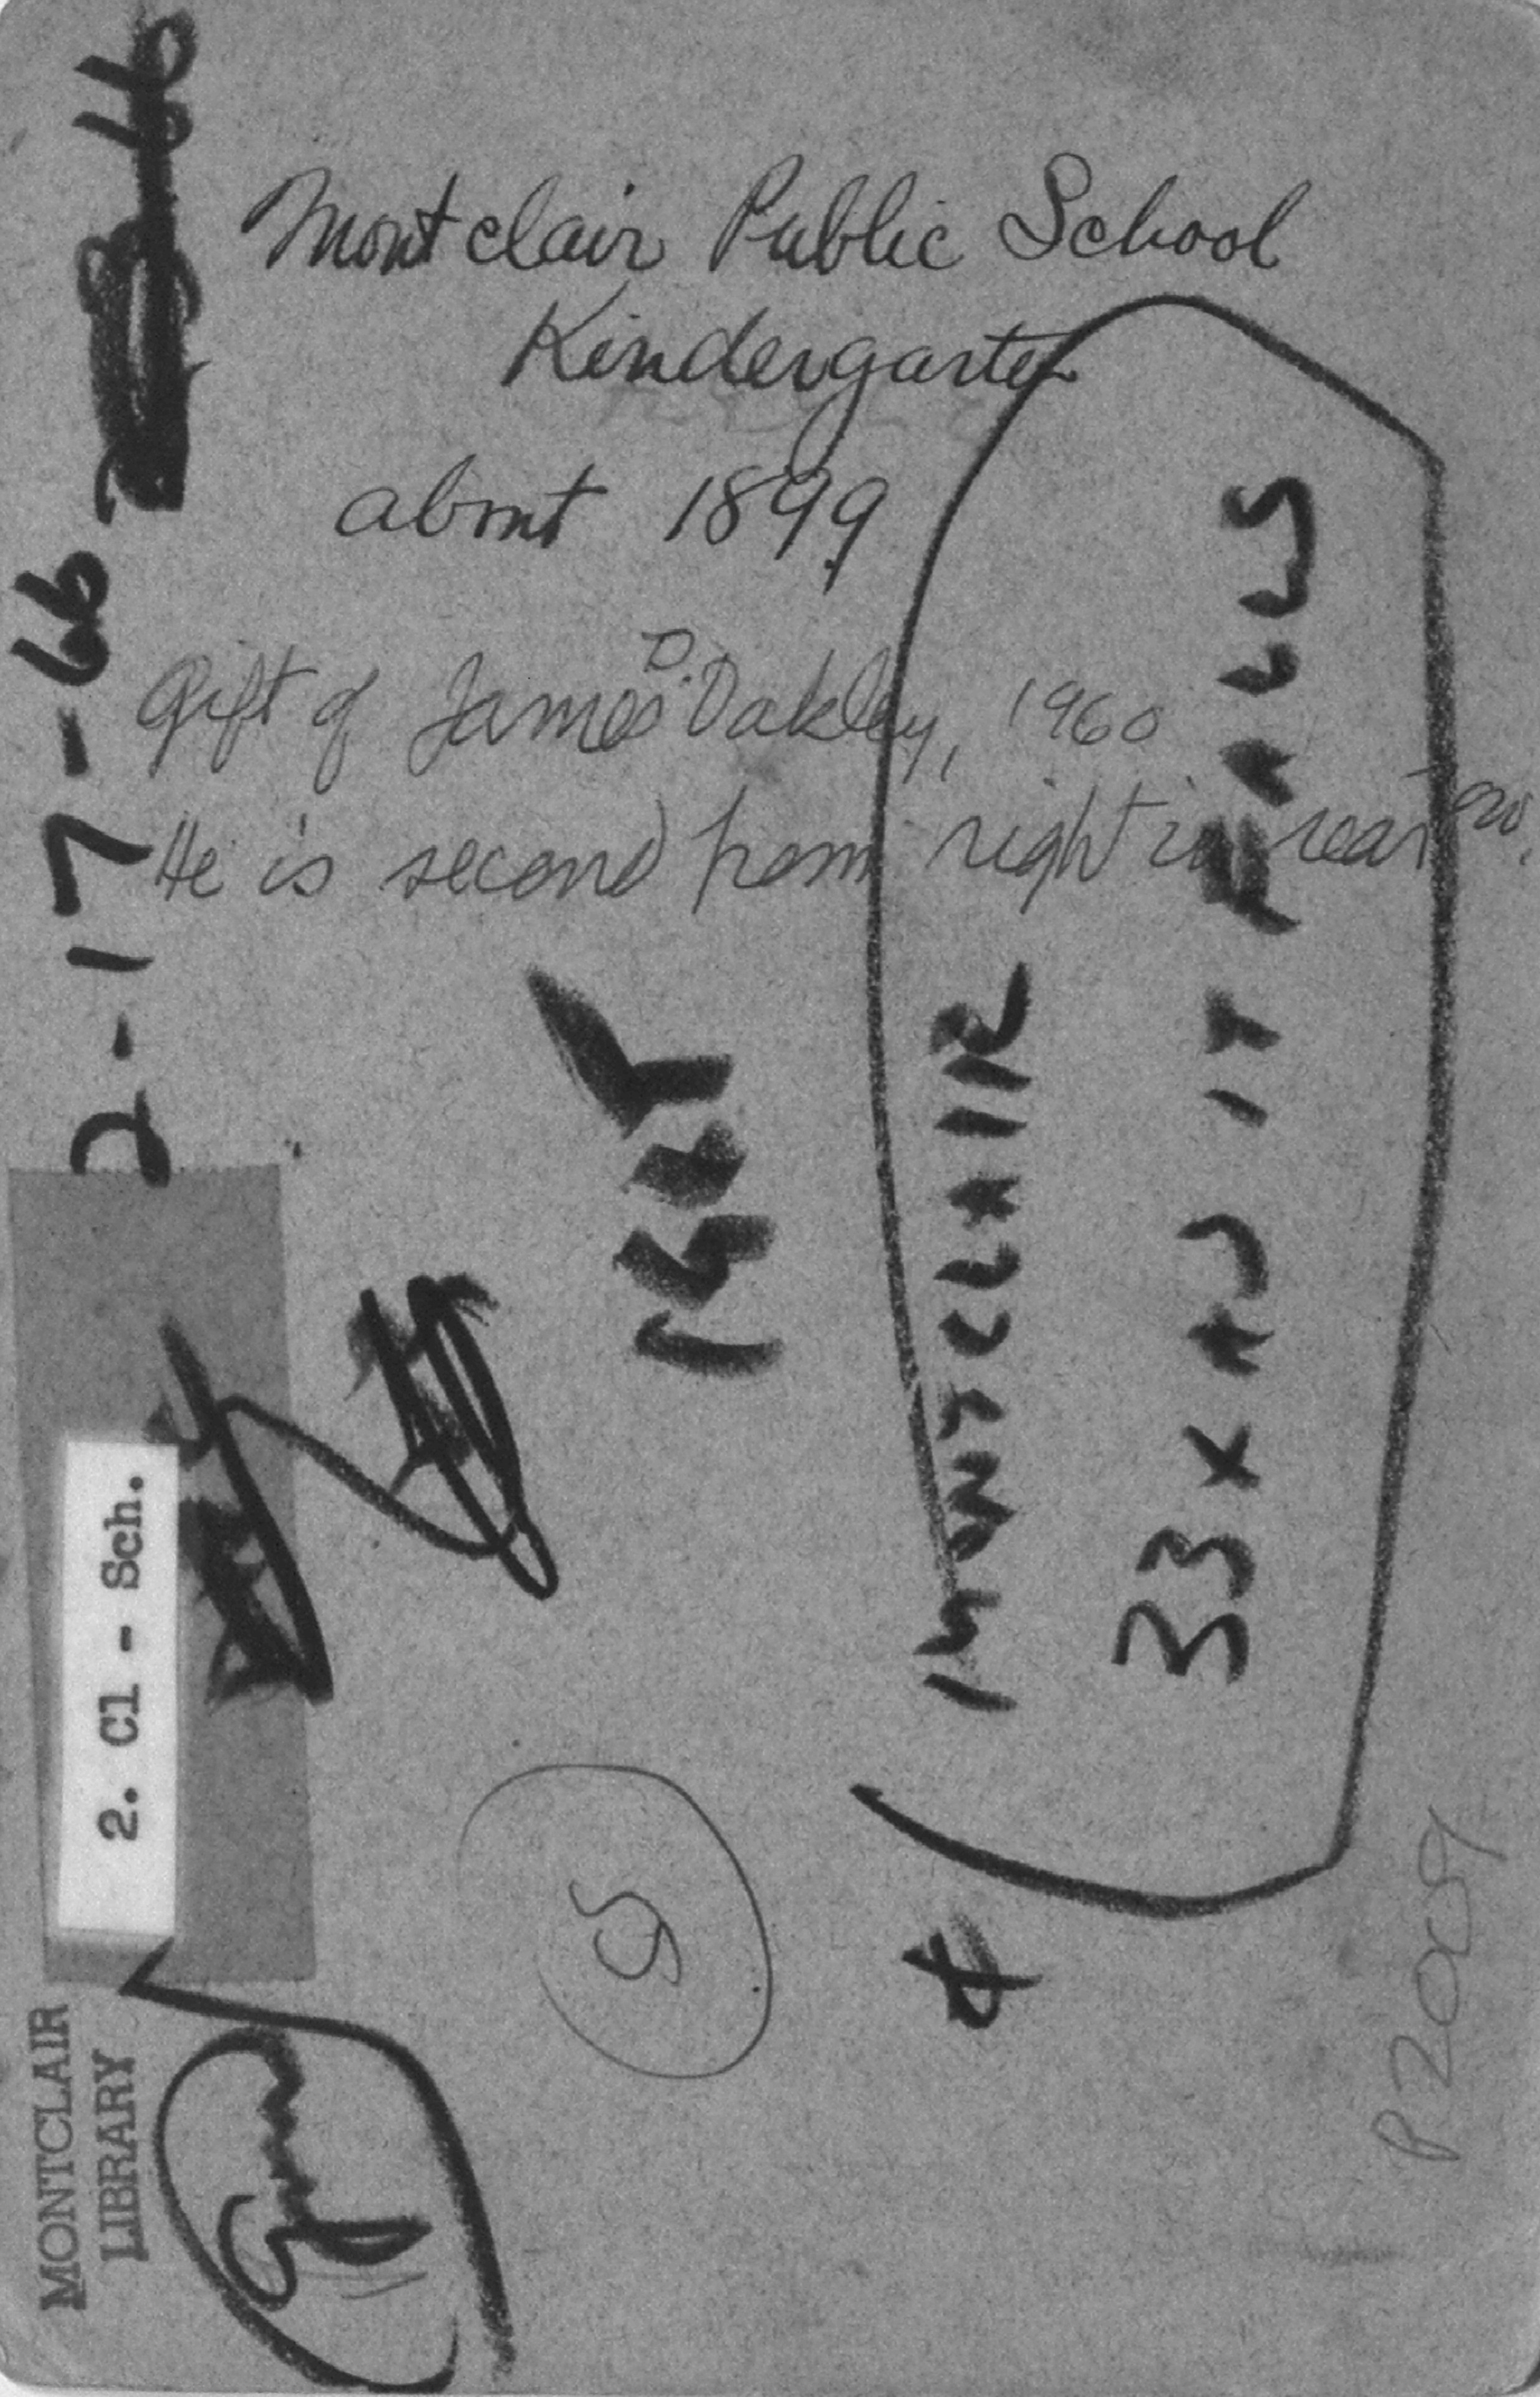 Montclair Public School
Kindergarten
about 1899.
Gift of James D. Oakley, 1960
He is second from right in rear row.
2-17-66
MONTCLAIR
33 X AS IT FALLS
2. Cl - Sch.
MONTCLAIR
LIBRARY
P2009